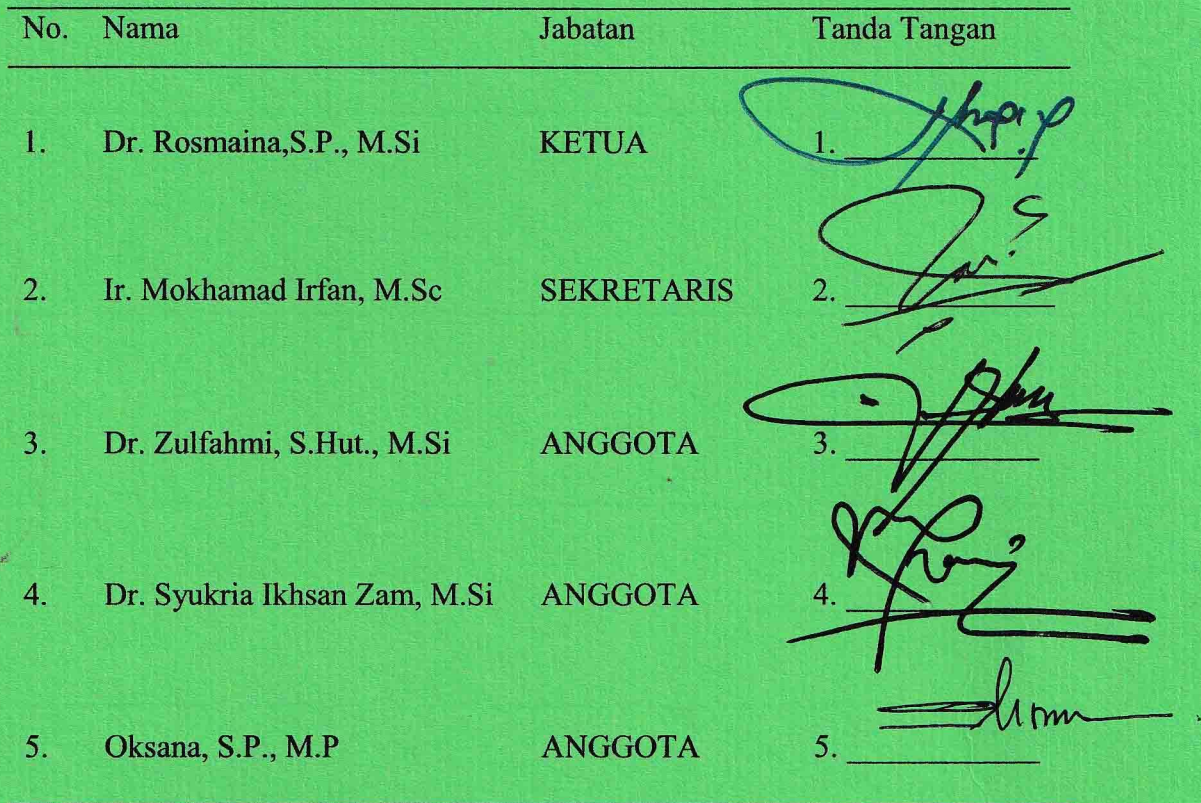 No. Nama Jabatan Tanda Tangan
1. Dr. Rosmaina,S.P., M.Si KETUA 1.
2. Ir. Mokhamad Irfan, M.Sc SEKRETARIS 2.
3. Dr. Zulfahmi, S.Hut., M.Si ANGGOTA 3.
4. Dr. Syukria Ikhsan Zam, M.Si ANGGOTA 4.
5. Oksana, S.P., M.P ANGGOTA 5.